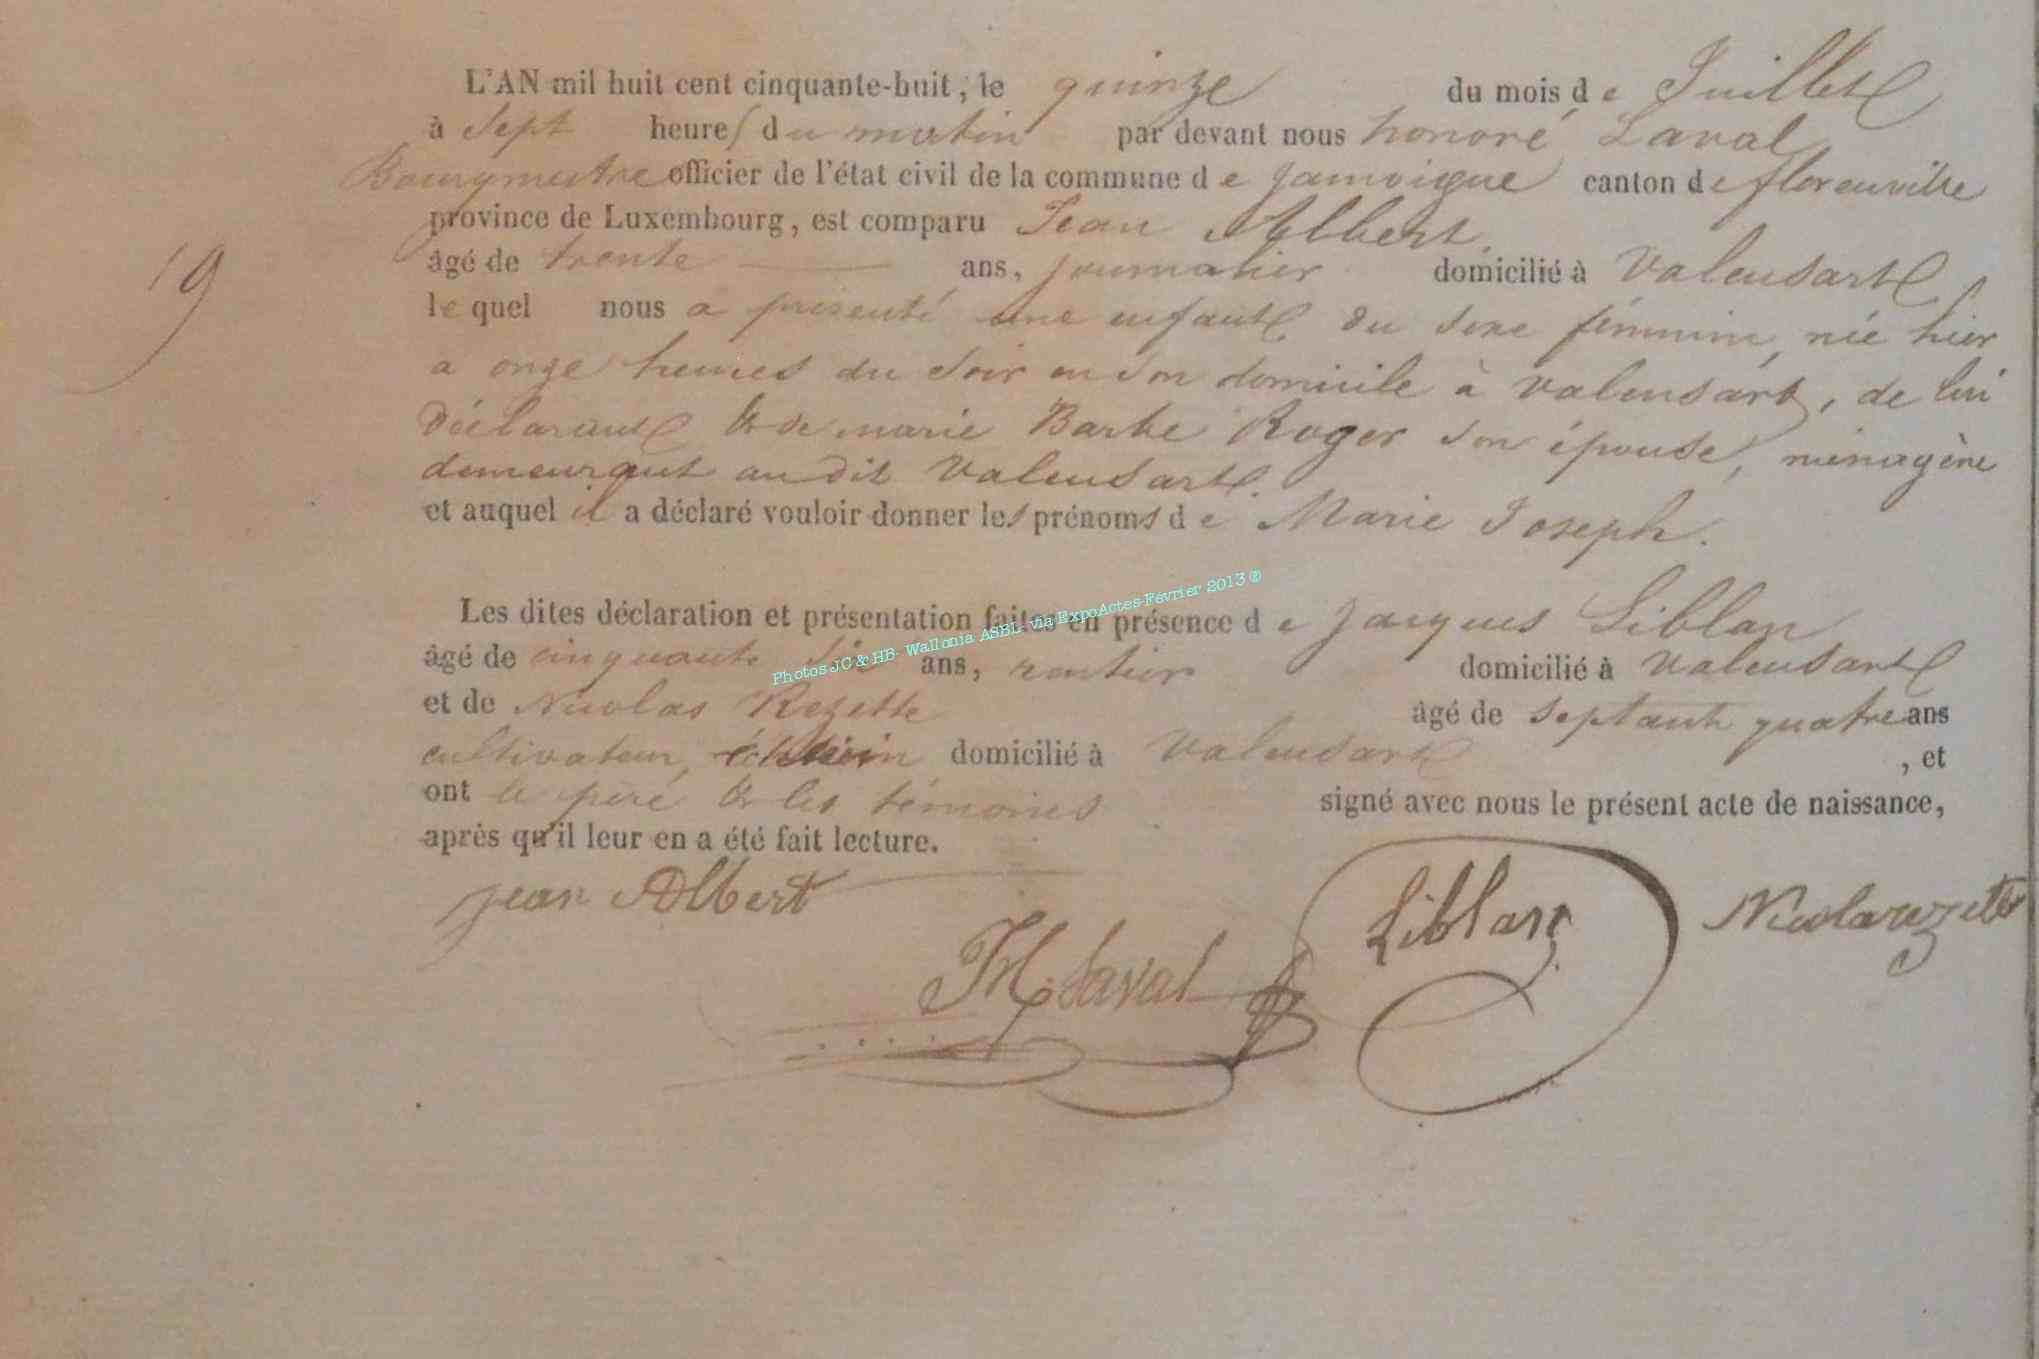 L'AN mil huit cent cinquante-huit, le quinze du mois de Juillet
à Sept heures du matin par devant nous honoré Laval
Bourgmestre officier de l'état civil de la commune de Jamoigne canton de florenville
province de Luxembourg, est comparu Jean Albert.
âgé de trente ans, journalier domicilié à Valensart
19
lequel nous a présenté une enfant du sexe féminin, née hier
a onze heures du soir en son domicile à Valensart, de lui
Déclarant & de marie Barbe Roger son épouse, ménagère
demeurant au dit Valensart.
et auquel il a déclaré vouloir donner les prénoms de Marie Joseph.
Les dites déclaration et présentation faites en présence de Jacques Liblan
Photos JC & HB- Wallonia ASBL- via ExpoActes-Février 2013 ®
âgé de cinquante ans, rentier domicilié à Valensart
et de Nicolas Rezette âgé de septante quatre ans
cultivateur, domicilié à Valensart, et
ont le père & les témoins signé avec nous le présent acte de naissance,
après qu'il leur en a été fait lecture.
jean Albert
H Laval
Liblanc
Nicola rezette